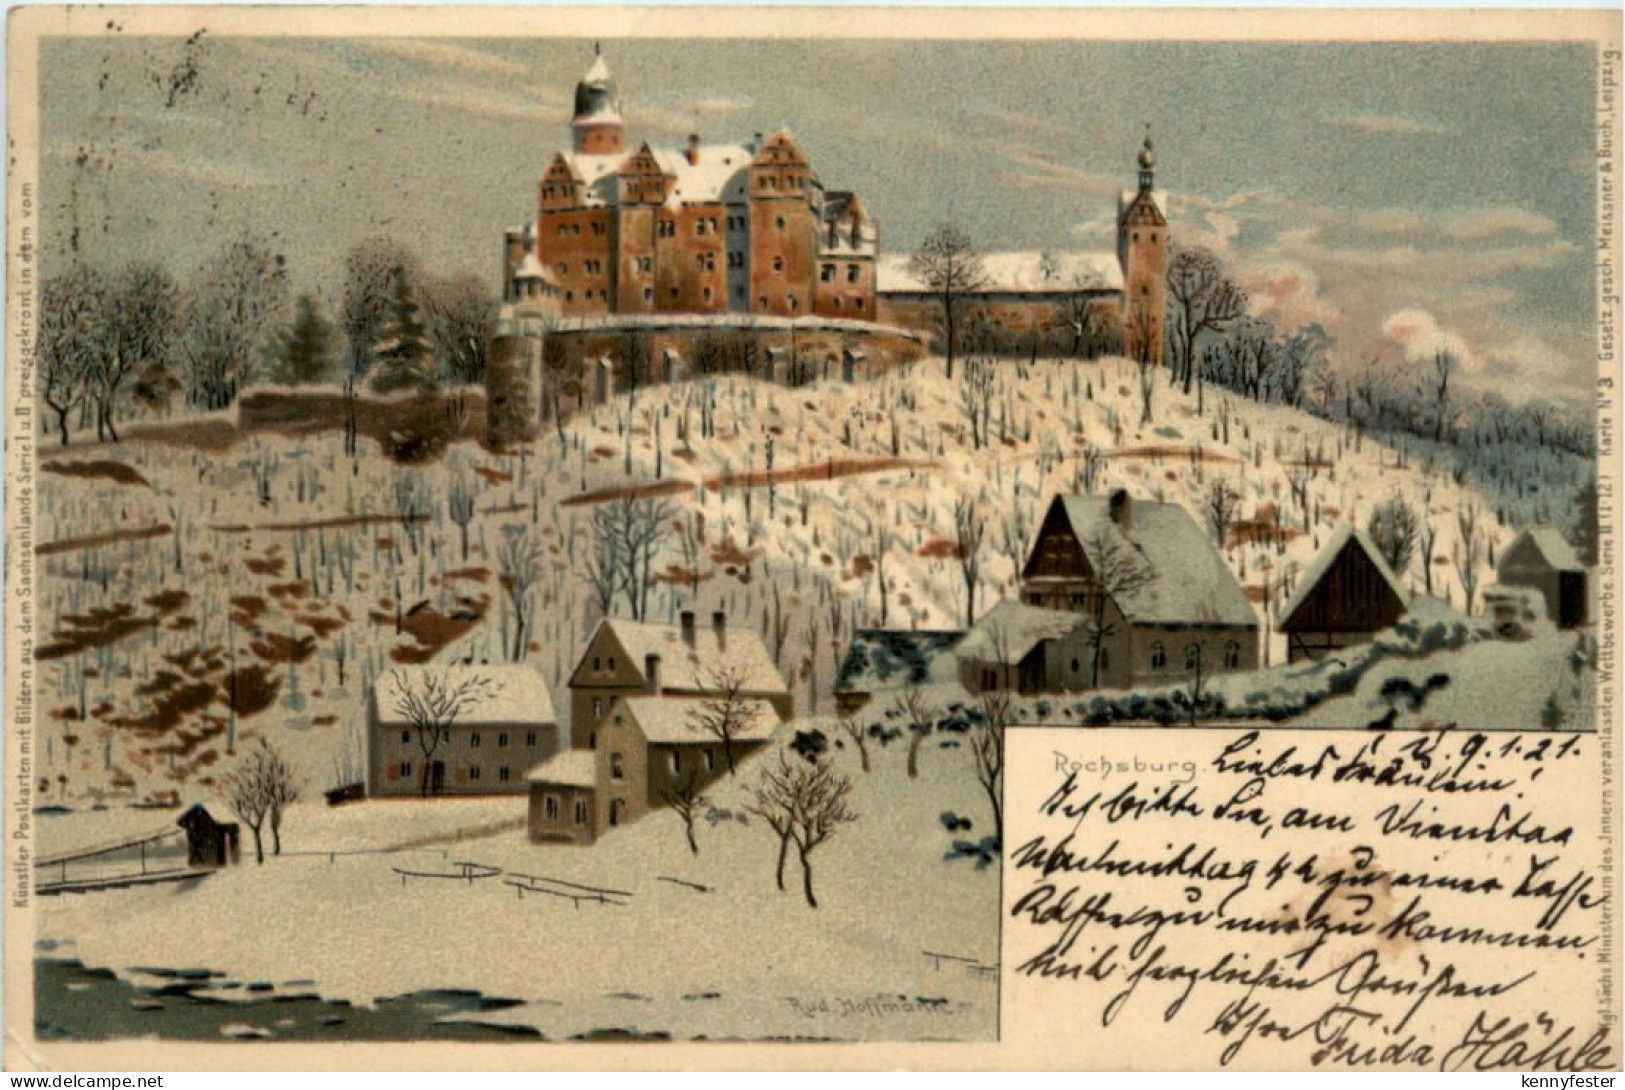 Künstler Postkarten mit Bildern aus dem Sachsenlande Serie I u. II preisgekrönt in dem vom
Kgl. Sächs. Ministerium des Jnnern veranlassten Wettbewerbe. Serie II (1-12) Karte N° 3 Gesetz. gesch. Meissner & Buch, Leipzig.
Rud. Hoffmann
Rochsburg.
9.1.21.
Liebes Fräulein!
Ich bitte Sie, am Dienstag
Nachmittag zu einer Tasse
Kaffee zu mir zu kommen.
Mit herzlichen Grüßen
Ihre Frida Hähle
kennyfester